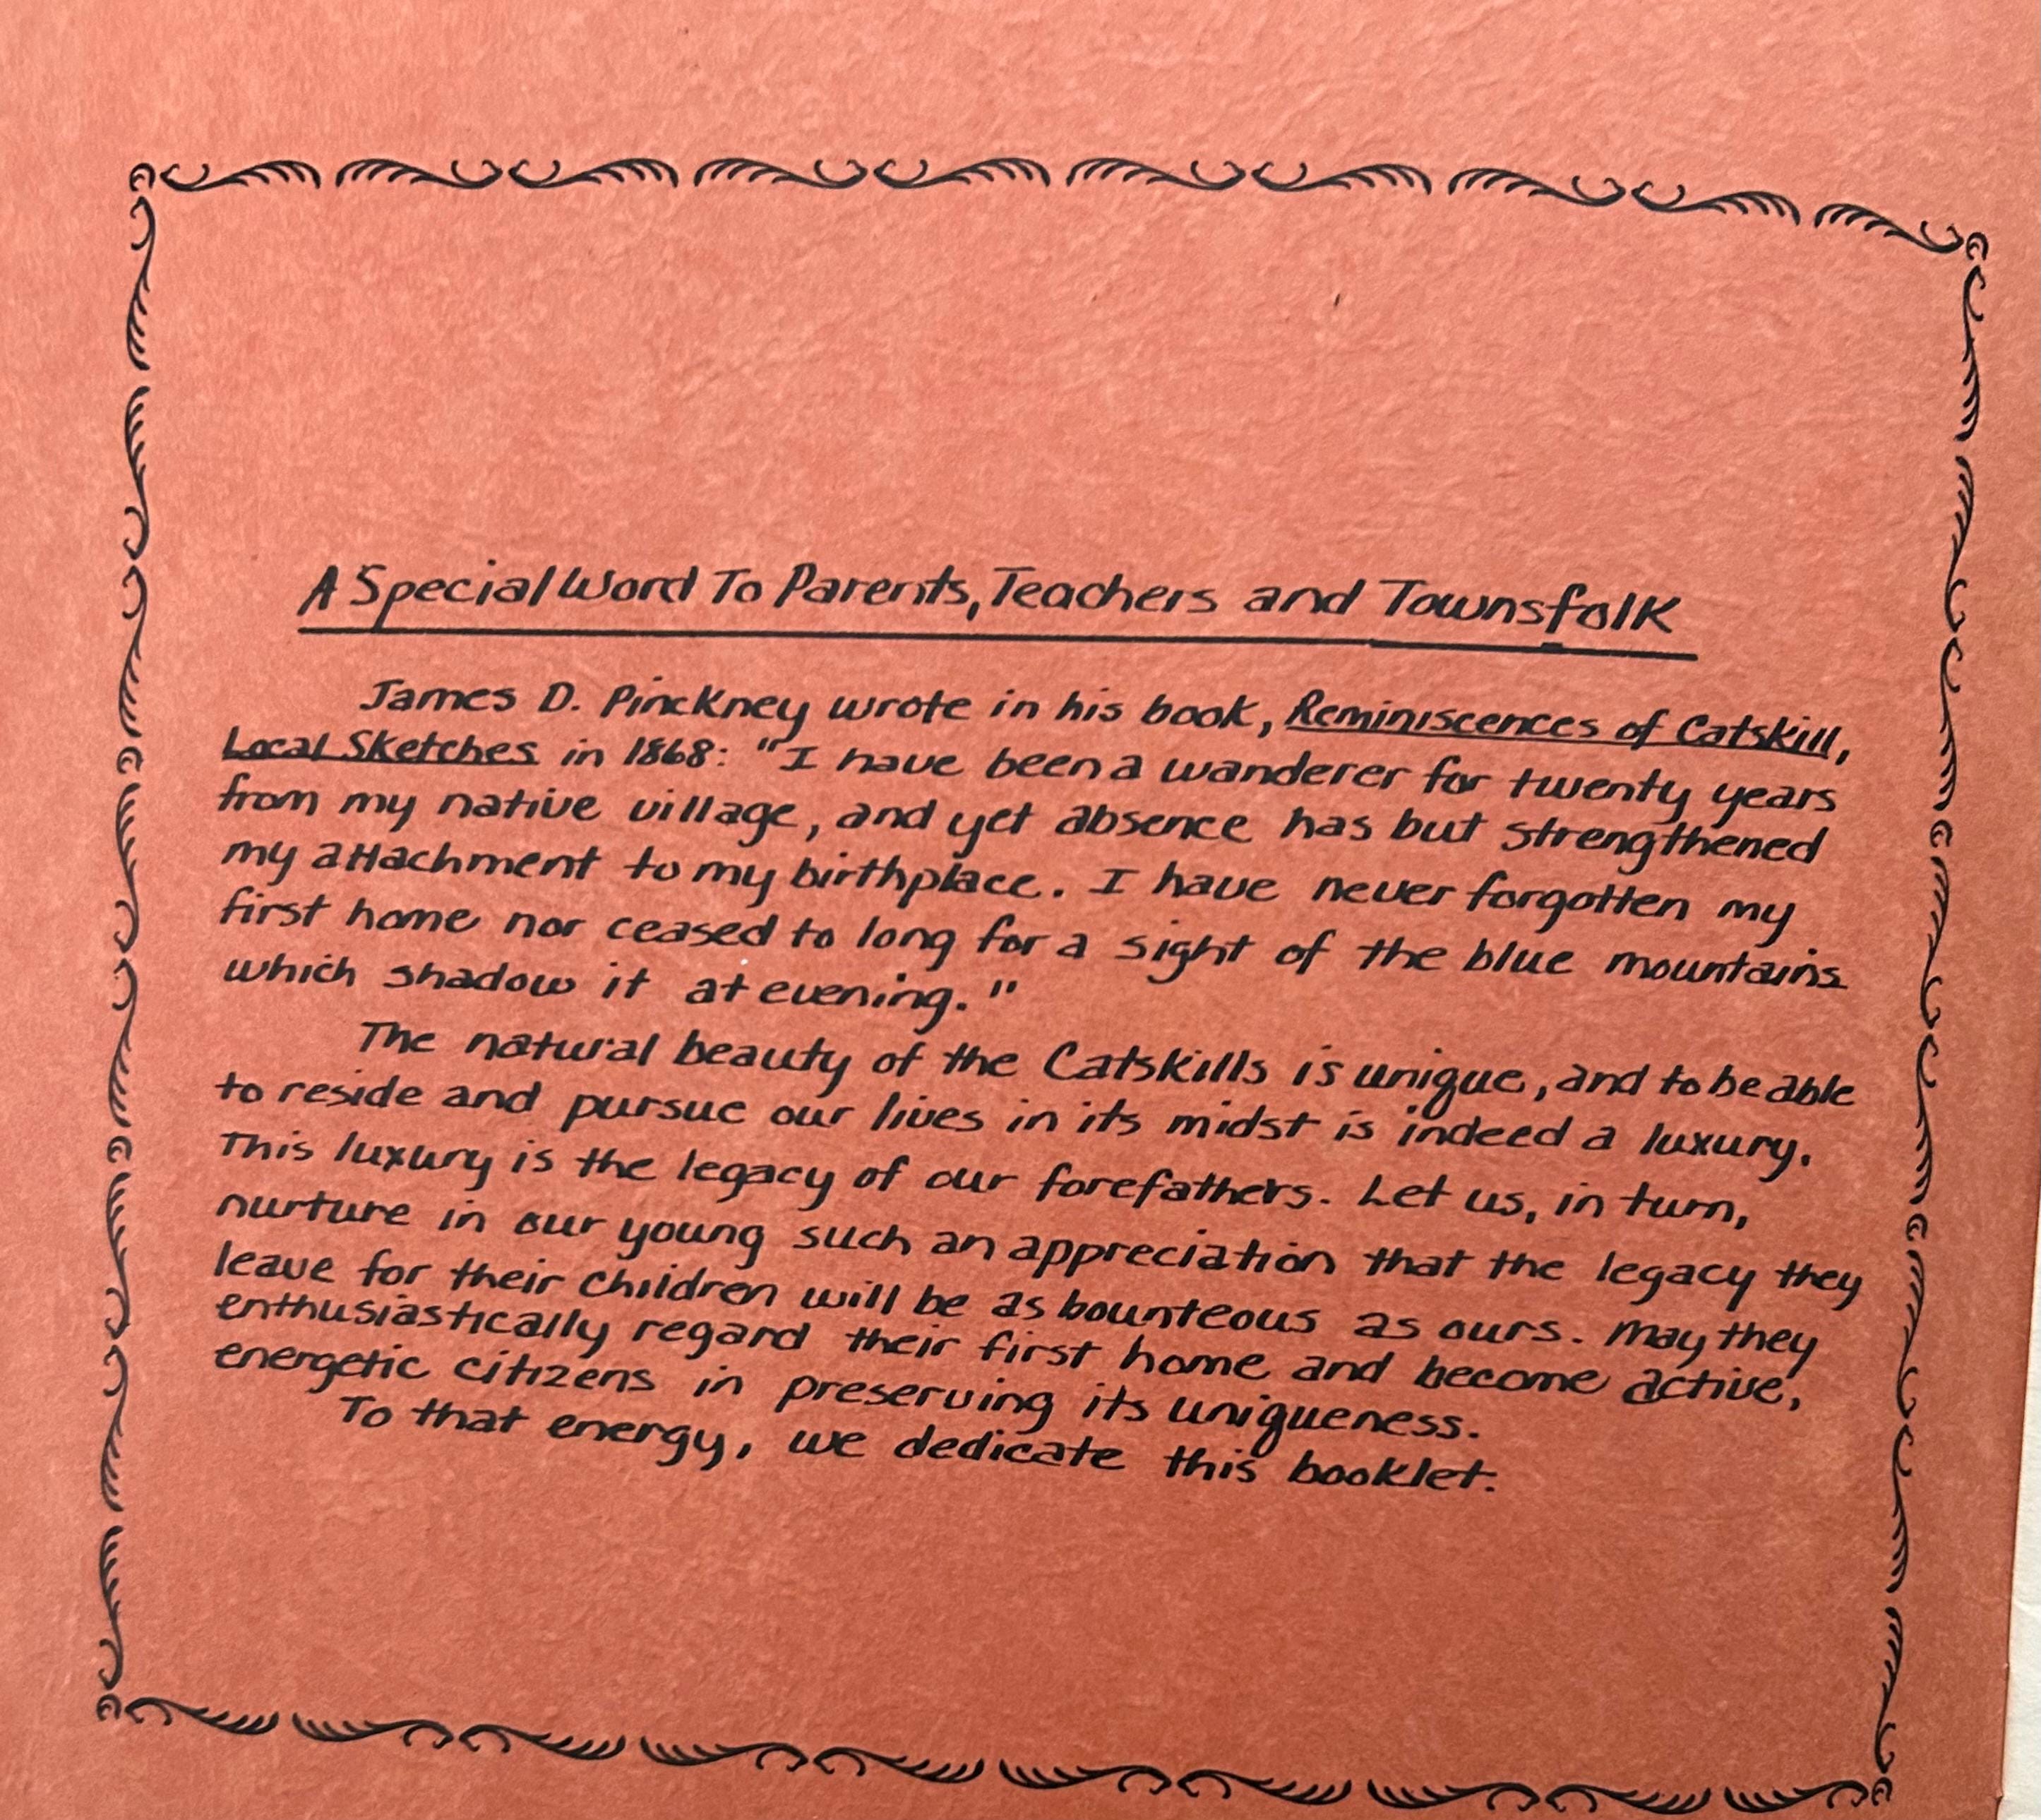 A Special Word To Parents, Teachers and Townsfolk
James D. Pinckney wrote in his book, Reminiscences of Catskill,
Local Sketches in 1868: "I have been a wanderer for twenty years
from my native village, and yet absence has but strengthened
my attachment to my birthplace. I have never forgotten my
first home nor ceased to long for a sight of the blue mountains
which shadow it at evening."
The natural beauty of the Catskills is unique, and to be able
to reside and pursue our lives in its midst is indeed a luxury.
This luxury is the legacy of our forefathers. Let us, in turn,
nurture in our young such an appreciation that the legacy they
leave for their children will be as bounteous as ours. May they
enthusiastically regard their first home and become active,
energetic citizens in preserving its uniqueness.
To that energy, we dedicate this booklet.